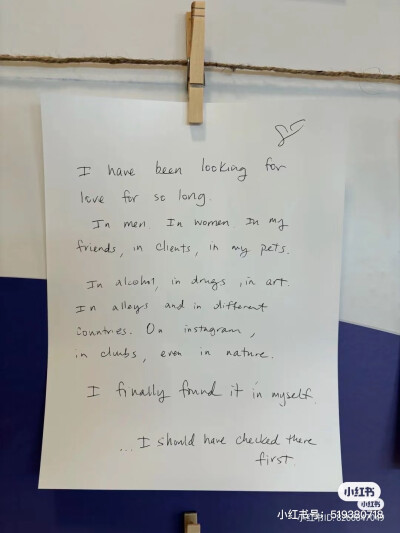 I have been looking for
love for so long.
In men. In women. In my
friends, in clients, in my pets.
In alcohol, in drugs, in art.
In alleys and in different
countries. On instagram,
in clubs, even in nature.
I finally found it in myself.
...I should have checked there
first.
小红书
小红书
小红书号：519380718
小红书ID: